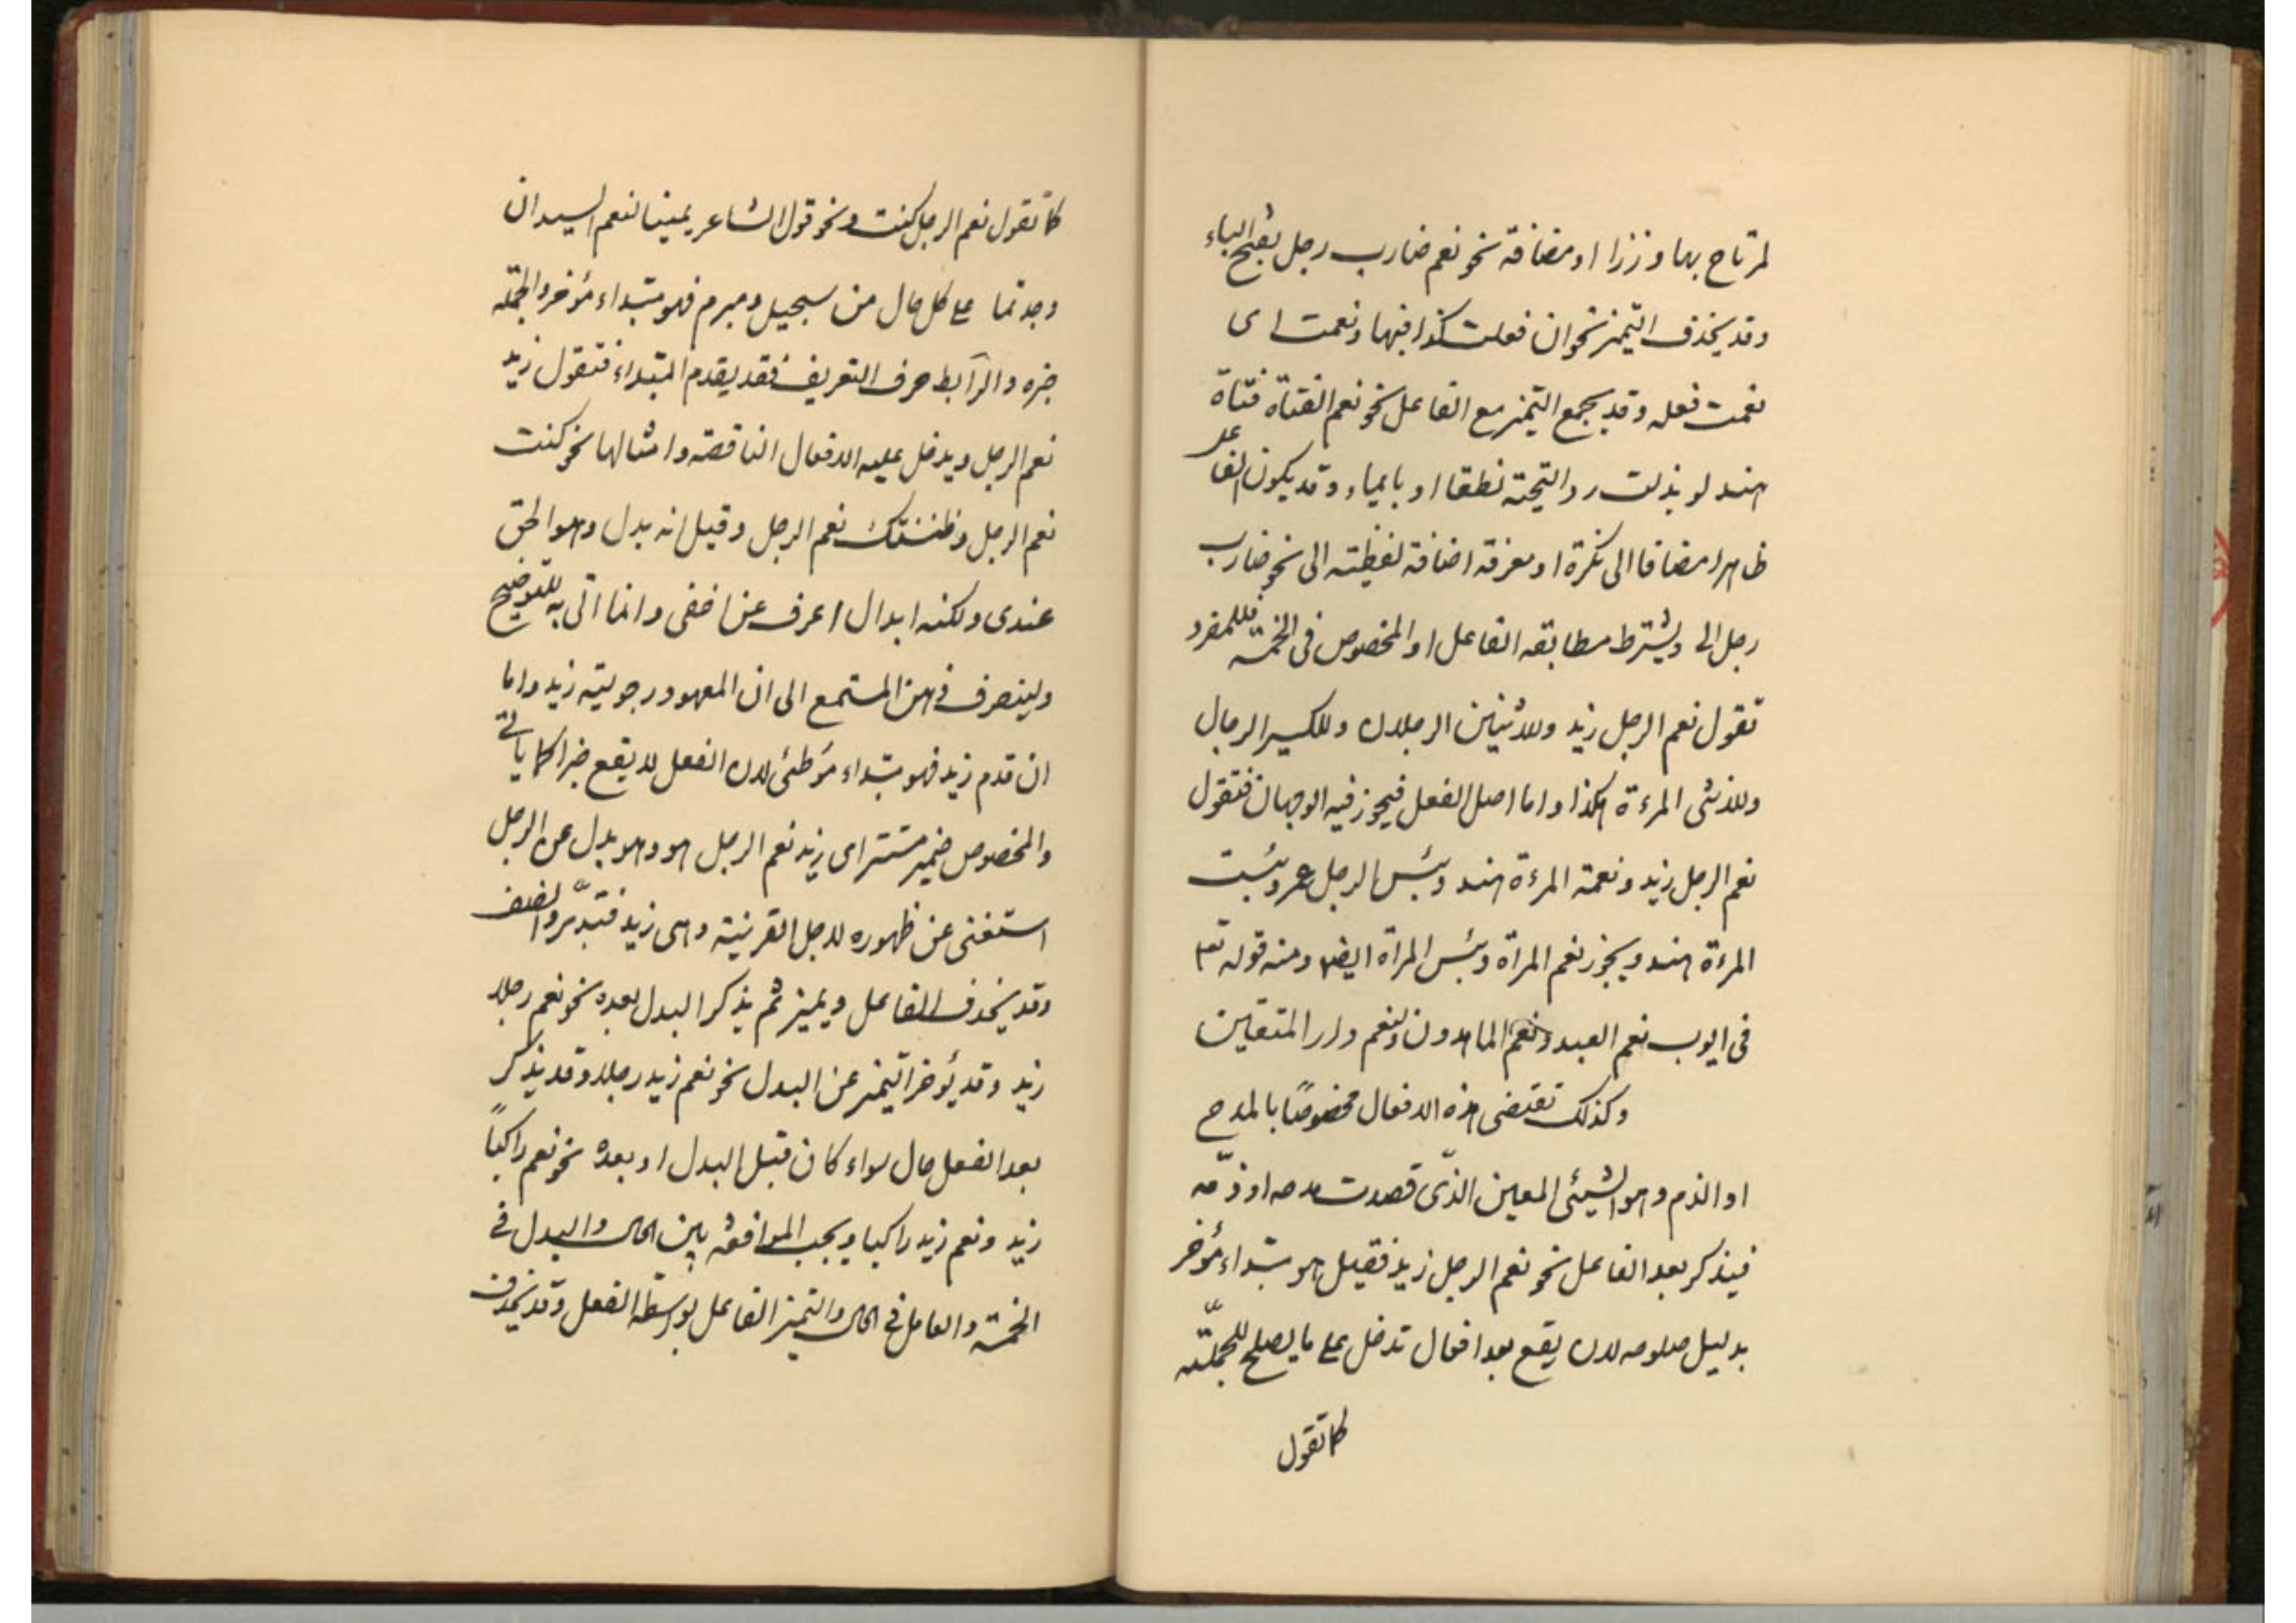 لمرتاح بها وزرا او مضافة نحو نعم ضارب رجل بفتح الباء
وقد يحذف التميز نحو ان فعلت كذا فبها ونعمت اى
نعمت فعله وقد يجمع التميز مع الفاعل نحو نعم الفتاة فتاة
هند لو بذلت رد التحية نطقا او بايماء وقد يكون الفاعل
ظاهرا مضافا الى نكرة او معرفة اضافة لفظية الى نحو ضارب
رجل الى ويشترط مطابقه الفاعل او المخصوص فى الخمسة فللمفرد
تقول نعم الرجل زيد وللاثنين الرجلان وللكسير الرجال
وللانثى المرءة هكذا واما اصل الفعل فيجوز فيه الوجهان فتقول
نعم الرجل زيد ونعمة المرءة هند وبئس الرجل عمر وبئست
المرءة هند ويجوز نعم المراة وبئس المراة ايضا ومنه قوله تعه
فى ايوب نعم العبد ونعم الماهدون ولنعم دار المتقين
وكذلك تقتضى هذه الافعال مخصوصًا بالمدح
او الذم وهو الشيئى المعين الذّى قصدت مدحه او ذمّه
فيذكر بعد الفاعل نحو نعم الرجل زيد فقيل هو مبتداء مؤخر
بدليل صلوحه لان يقع بعد افعال تدخل على ما يصلح للجملّة
كما تقول
كما تقول نعم الرجل كنت ونحو قول الشاعر يمينا لنعم السيدان
وجدتما على كل حال من سحيل ومبرم فهو مبتداء مؤخر والجملة
خبره والرّابط حرف التعريف فقد يقدم المبتداء فتقول زيد
نعم الرجل ويدخل عليه الافعال الناقصة وامثالها نحو كنت
نعم الرجل وظننتك نعم الرجل وقيل انه بدل وهو الحق
عندى ولكنه ابدال اعرف عن اخفى وانما اتى به للتوضيح
ولينصرف ذهن المستمع الى ان المعهود رجولية زيد واما
ان قدم زيد فهو مبتداء مؤطئ لان الفعل لا يقع خبرا كما ياتى
والمخصوص ضمير مستتر اى زيد نعم الرجل هو وهو بدل عن الرجل
استغنى عن ظهوره لاجل القرينة وهى زيد فتدبّر وانصف
وقد يحذف الفاعل ويميز ثم يذكر البدل بعده نحو نعم رجلا
زيد وقد يؤخر التميز عن البدل نحو نعم زيد رجلا وقد يذكر
بعد الفعل حال سواء كان قبل البدل او بعده نحو نعم راكبًا
زيد ونعم زيد راكبا ويجب الموافقة بين الحال والبدل فى
الخمسة والعامل فى الحال والتميز الفاعل بوسطة الفعل وقد يحذف